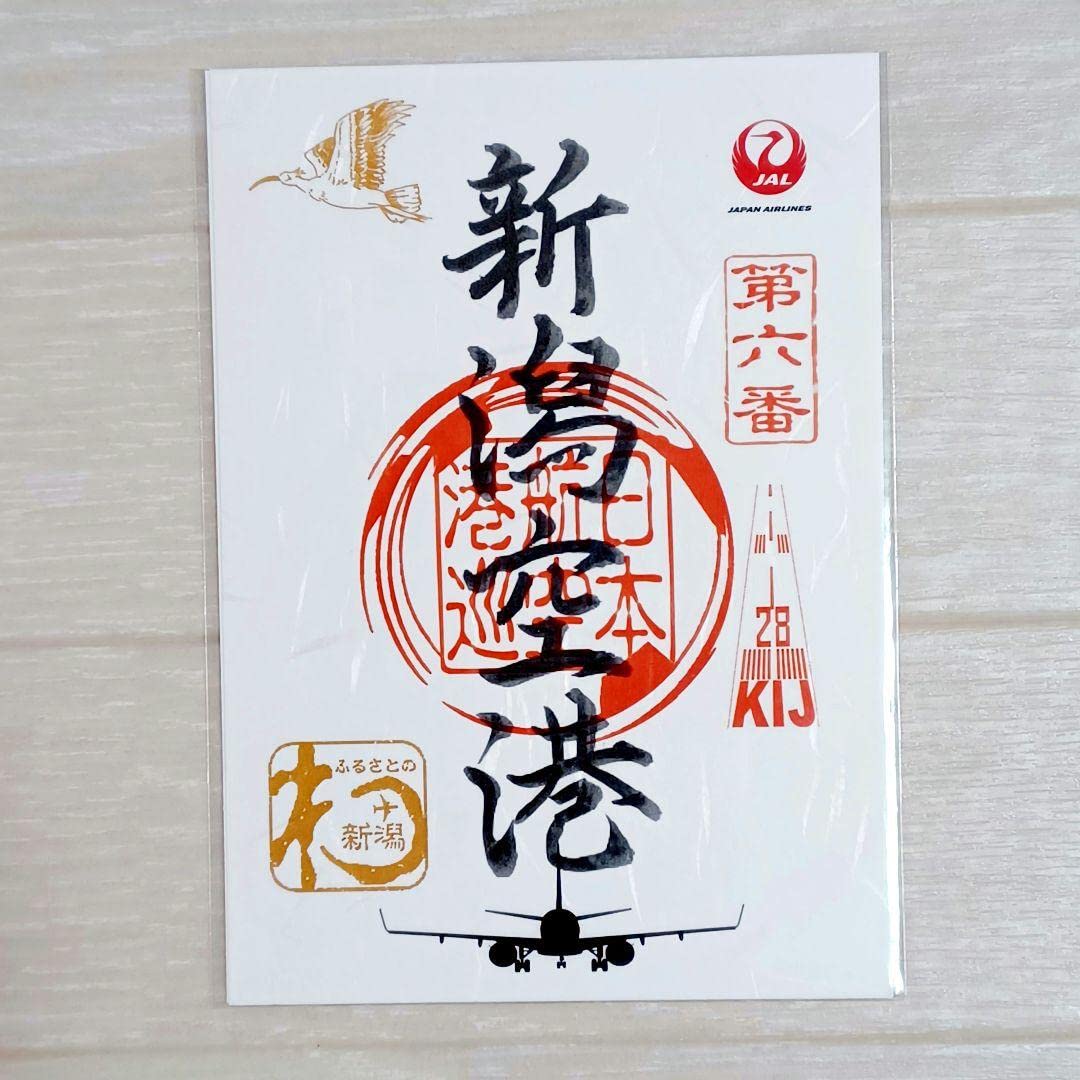 JAL
JAPAN AIRLINES
第六番
新潟空港
日本
航空
港巡
28
KIJ
ふるさとの
新潟